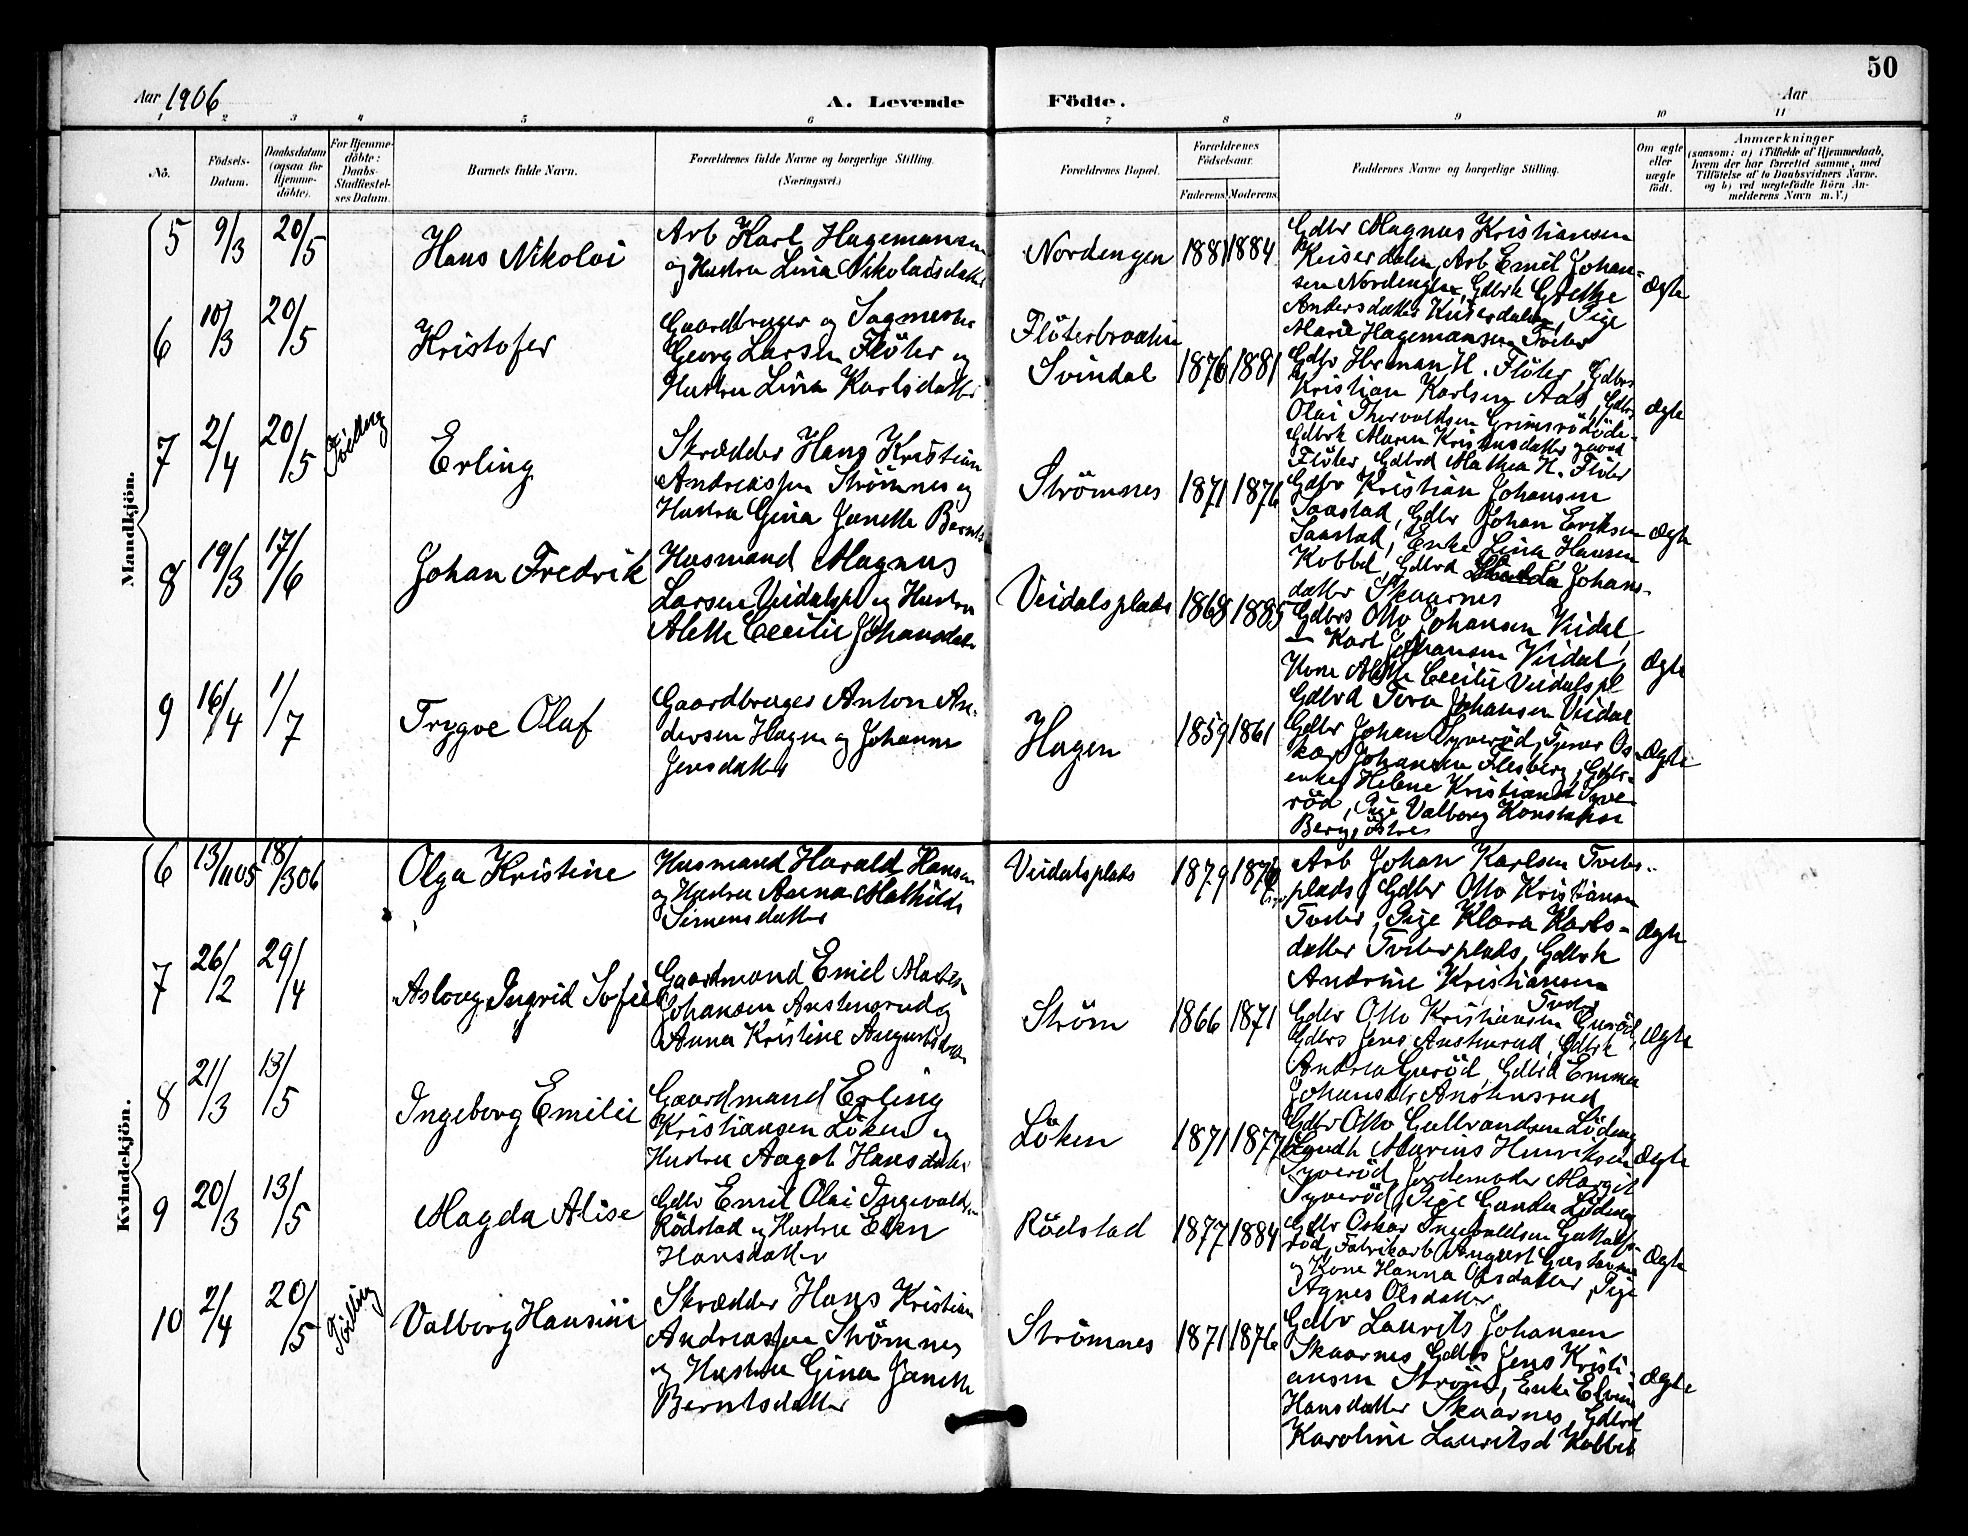 50
Aar 1906
A. Levende Födte.
Aar
1 2 3 4 5 6 7 8 9 10 11
No.
Födsels-Datum.
Daabsdatum (ogsaa for Hjemme-döbte).
For Hjemme-döbte: Daabs-Stadfæstel-ses Datum.
Barnets fulde Navn.
Forældrenes fulde Navne og borgerlige Stilling. (Næringsvei.)
Forældrenes Bopæl.
Forældrenes Födselsaar.
Faderens. Moderens.
Faddernes Navne og borgerlige Stilling.
Om ægte eller uægte födt.
Anmærkninger
(saasom: a) i Tilfælde af Hjemmedaab,
hvem der har forrettet samme, med
Tilföielse af to Daabsvidners Navne.
og b) ved uægtefödte Börn An-
melderens Navn m.V.)
Mandkjön.
5 9/3 20/5
Hans Nikolai
Arb Karl Hagemansen
og Hustru Lina Nikolaisdatter
Nordengen 1881 1884
Gdbr Magnus Kristiansen
Keiserdalen, Arb Emil Johan-
sen Nordengen, Gdbrk Grethe
Andersdatter Keiserdalen, Pige
Marie Hagemansen Tveter
Ægte
6 10/3 20/5
Kristofer
Gaardbruger og Sagmester
Georg Larsen Flöter og
Hustru Lina Karlsdatter
Flöterbraaten
Svindal 1876 1881
Gdbr Herman H. Flöter, Gdbrs
Kristian Karlsen Aas, Gdbrs
Olai Thorvaldsen Grimsrödöde-
Gdbrk Maren Kristensdatter
Flöter, Gdbrd Mathea H. Flöter
Ægte
7 2/4 20/5 Tvilling
Erling
Skrædder Hans Kristian
Andreassen Strömnes og
Hustru Gina Janette Bernts
Strömnes 1871 1876
Gdbr Kristian Johansen
Saastad, Gdbr Johan Eriksen
Saastad, Enke Lina Hansen
Kobbel, Gdbrd Johans-
datter Skaarnes
Ægte
8 19/3 17/6
Johan Fredrik
Husmand Magnus
Larsen Veidalspl og Hustru
Alette Cecilie Johansdatr
Veidalsplads 1868 1885
Gdbrs Otto Johansen Veidal,
— Karl Johansen Veidal,
Kone Alette Cecilie Veidalspl
Gdbrd Tora Johansen Veidal
Ægte
9 16/4 1/7
Trygve Olaf
Gaardbruger Anton An-
dersen Hagen og Johanne
Jensdatter
Hagen 1859 1861
Gdbr Johan Syveröd, Tjener Os-
kar Johansen Flesberg, Gdbr-
enke Helene Kristians Syve-
röd, Pige Valborg Konstanse
Berg, östre
Ægte
Kvindekjön.
6 13/11 05 18/3 06
Olga Kristine
Husmand Harald Hansen
og Hustru Anna Mathilde
Simensdatter
Veidalsplads 1879 1876
Arb Johan Karlsen Tveter-
plads, Gdbr Otto Kristiansen
Tveter, Pige Klara Karls-
datter Tveterplads, Gdbrk
Andrine Kristiansen
Tveter
Ægte
7 26/2 29/4
Aslaug Ingrid Sofie
Gaardmand Emil
Johansen Austensrud og
Anna Kristine Augustsdatr
Ström 1866 1871
Gdbr Otto Kristiansen Guröd,
Gdbrs Jens Austenrud, Gdbrk
Andrea Guröd, Gdbrd Emma
Johansdr
Ægte
8 21/3 13/5
Ingeborg Emilie
Gaardmand Erling
Kristiansen Löken og
Hustru Aagot Hansdatter
Löken 1871 1877
Gdbr Otto Gulbrandsen Löding
Landh Marius Henriksen
Syveröd, Jordemoder Margit
Syveröd, Pige Gunda Löding
Ægte
9 20/3 13/5
Magda Alise
Gdbr Emil Olai Ingevaldsen
Rödstad og Hustru Elen
Hansdatter
Rödstad 1877 1884
Gdbr Oskar Ingevaldsen
röd, Fabrikarb August Gustavsen
og Kone Hanna Olsdatter, Pige
Agnes Olsdatter
Ægte
10 2/4 20/5 Tvilling
Valborg Hansine
Skrædder Hans Kristian
Andreassen Strömnes
og Hustru Gina Janette
Berntsdatter
Strömnes 1871 1876
Gdbr Laurits Johansen
Skaarnes, Gdbrs Jens Kristi-
ansen Ström, Enke Elvine
Hansdatter Skaarnes, Gdbrd
Karoline Lauritsd Kobbel
Ægte